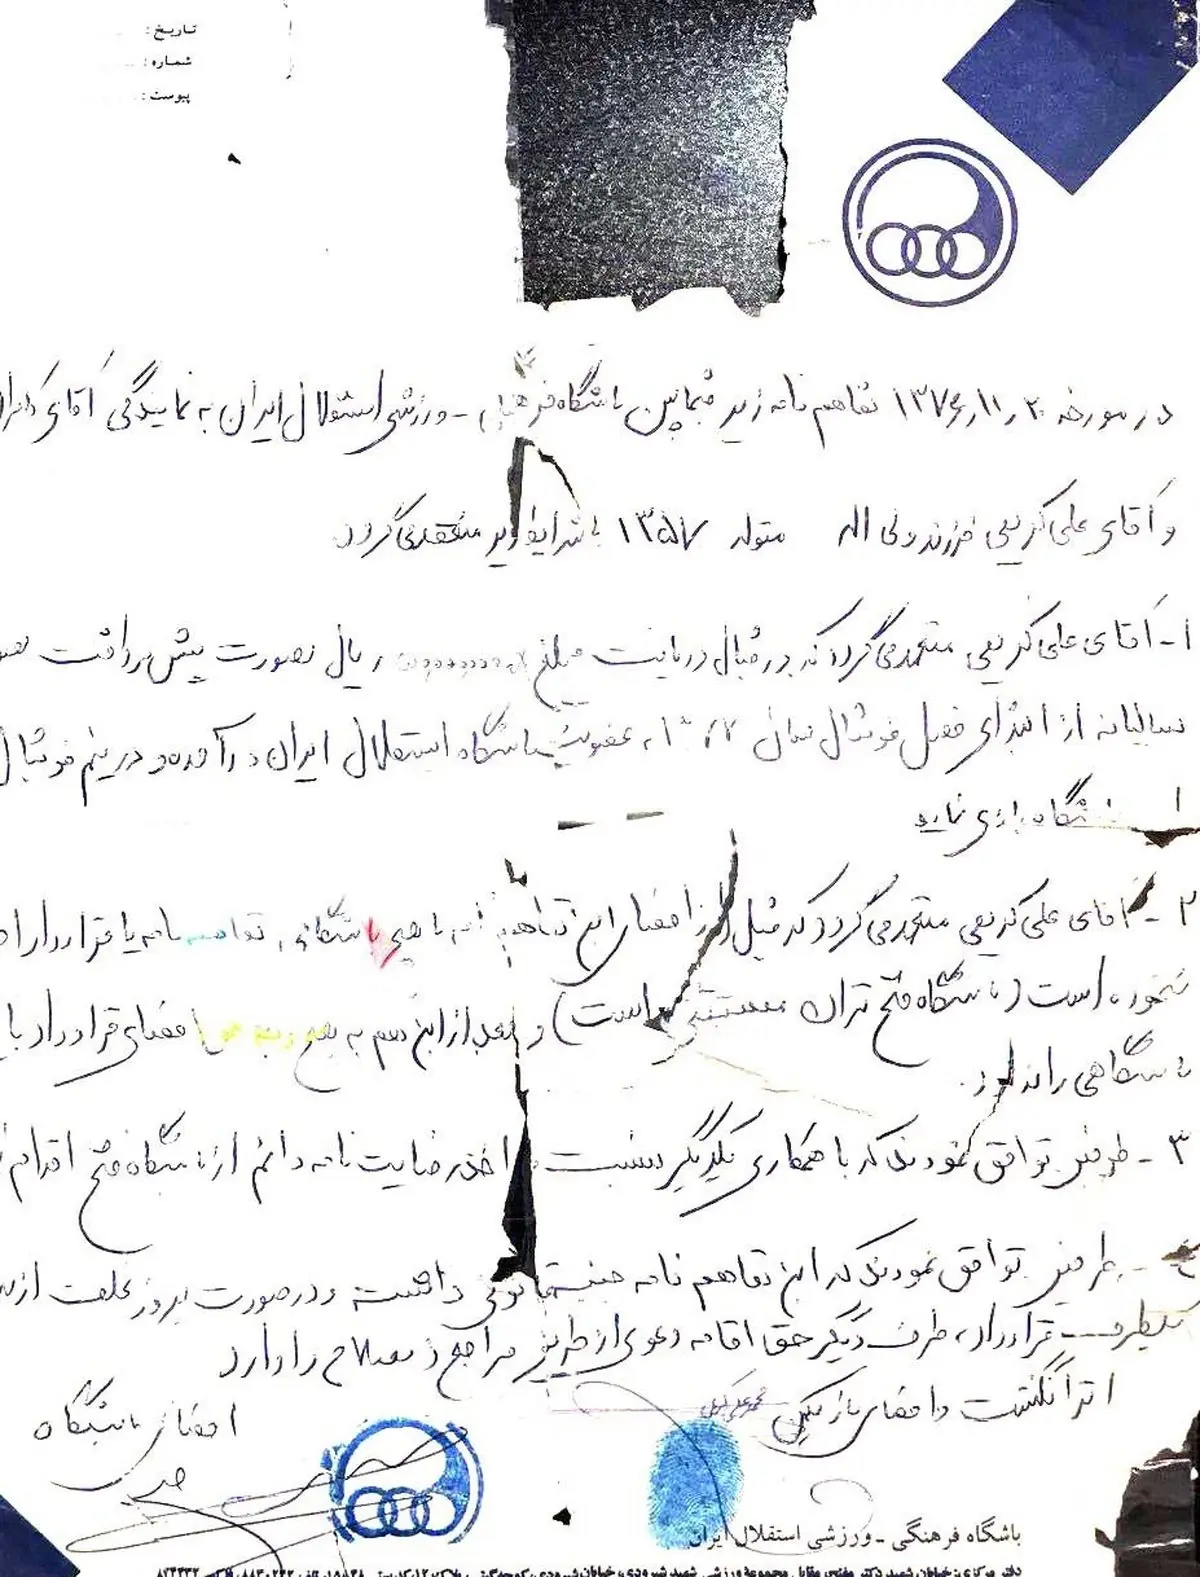 تاریخ:
شماره:
پیوست:
در مورخه ۱۳۷۶/۱۱/۲۰ تفاهم نامه زیر فیمابین باشگاه فرهنگی - ورزشی استقلال ایران به نمایندگی آقای
و آقای علی کریمی فرزند ولی اله متولد ۱۳۵۷ با شرایط زیر منعقد می گردد
۱- آقای علی کریمی متعهد می گردد که در قبال دریافت مبلغ ریال بصورت پیش پرداخت
سالیانه از ابتدای فصل فوتبال سال به عضویت باشگاه استقلال ایران درآمده و در تیم فوتبال
باشگاه بازی نماید
۲- آقای علی کریمی متعهد می گردد که قبل از امضای این تفاهم نامه با هیچ باشگاهی تفاهم نامه یا قرارداد
نخورده است (باشگاه فتح تهران مستثنی است) و بعد از این هم به هیچ وجه حق امضای قرارداد با
باشگاهی را ندارد.
۳- طرفین توافق نمودند که با همکاری یکدیگر نسبت به اخذ رضایت نامه دائم از باشگاه فتح اقدام
۴- طرفین توافق نمودند که این تفاهم نامه جنبه قانونی داشته و در صورت بروز تخلف از
یکطرف قرارداد، طرف دیگر حق اقامه دعوی از طریق مراجع ذیصلاح را دارد
اثر انگشت و امضای بازیکن
امضای باشگاه
باشگاه فرهنگی - ورزشی استقلال ایران
دفتر مرکزی: خیابان شهید دکتر مفتح، مقابل مجموعه ورزشی شهید شیرودی، خیابان شیرودی،